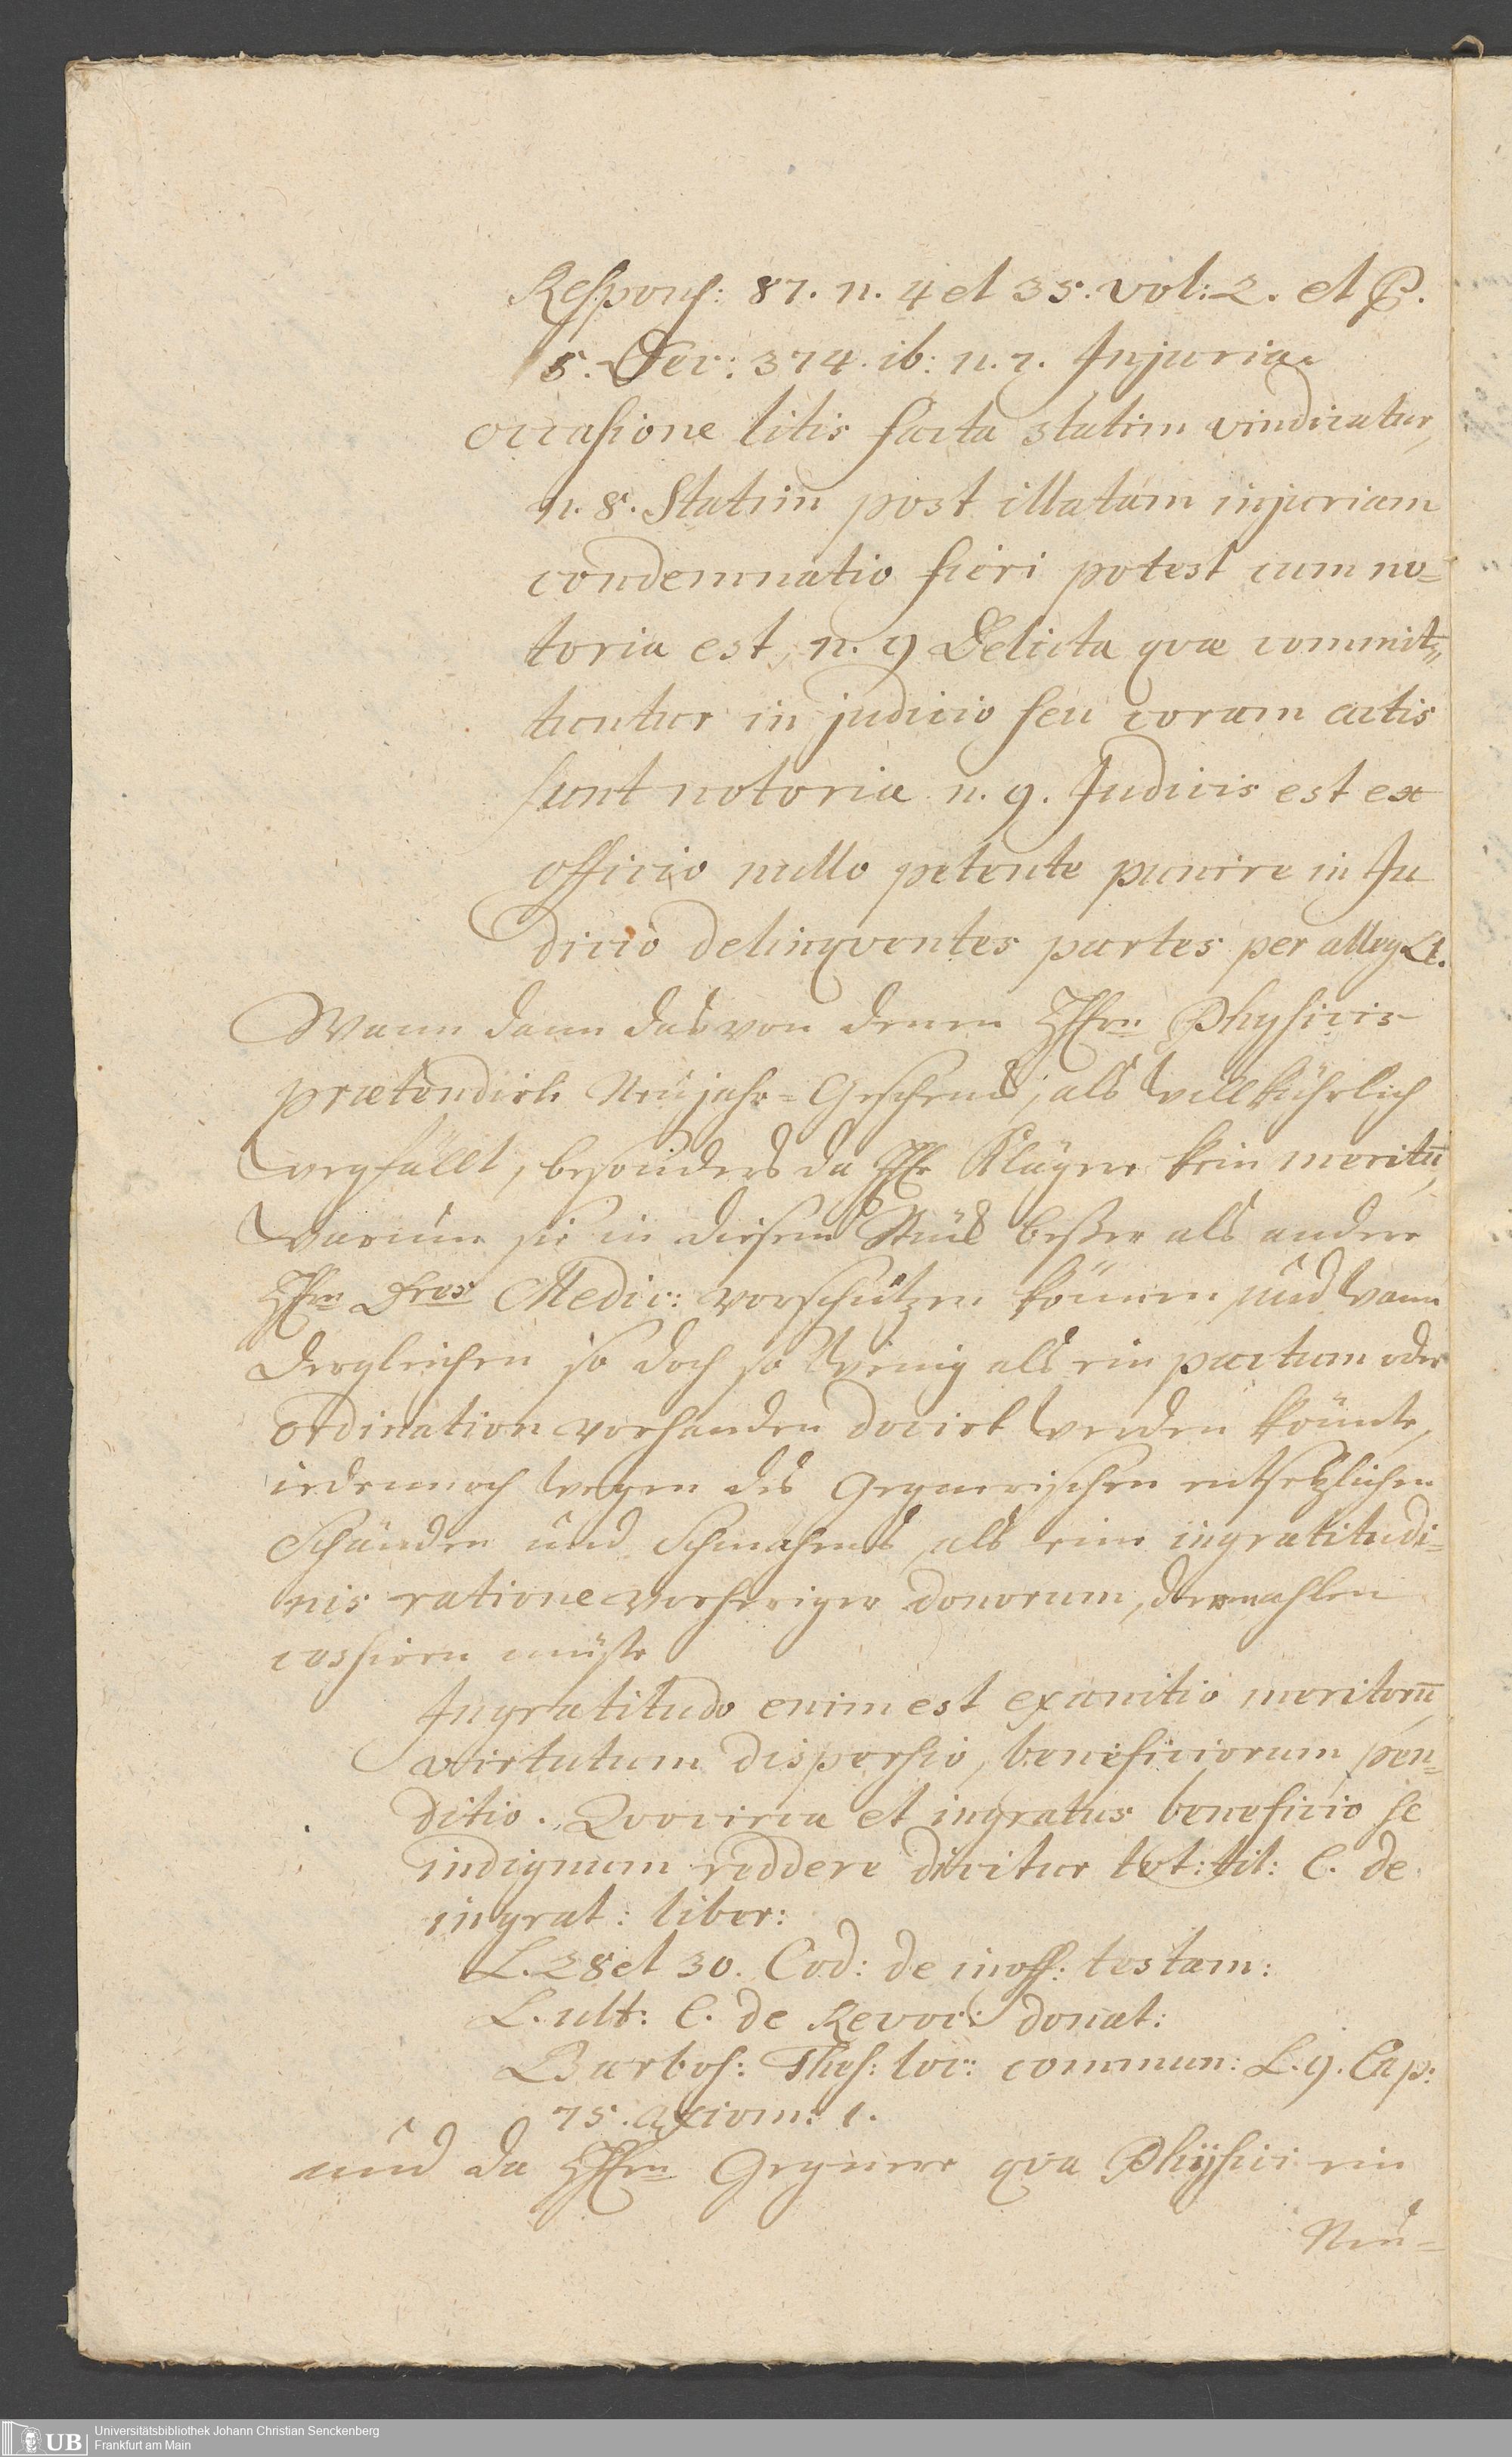 Respons: 87. n. 4 et 35. vol: 2. et P.
5. Dec: 374. ib: n. 7. Injuria
occasione litis facta statim vindicatur,
n. 8. Statim post illatam injuriam
condemnatio fieri potest cum no=
toria est, n. 9 Delicta quæ commit=
tuntur in judicio seu coram actis
sunt notoria n. 9. Judicis est ex
officio nullo petente punire in Ju
dicio delinqventes partes per alleg.
Wann dann das von denen HHrn Physicis
prætendirte Neüjahr=Geschenck, als willkührlich
wegfällt, besonders da HHr Klägere kein meritū,
warum sie in diesem Stück beßer als andere
HHrn Dres Medic: vorschützen können, und wann
dergleichen so doch so wenig als ein pactum oder
ordination vorhanden docirt werden könnte,
iedennoch wegen des Gegnerischen entsetzlichen
Schänden und Schmähens, als eine ingratitudi=
nis ratione vorheriger donorum, dermahlen
cessiren müste
Ingratitudo enim est exanitio meritorū,
virtutum dispersio, beneficiorum per=
ditio. Qvocirca et ingratus beneficio se
indignum reddere dicitur tot: tit: C. de
ingrat: liber:
L. 28 et 30. Cod: de inoff: testam:
L. ult: C. de Revoc: donat:
Barbos: Thes: loc: commun: L. 9. Cap:
75. axiom: 1.
und da HHrn Gegnere qva Physici ein
Neü=
UB
Universitätsbibliothek Johann Christian Senckenberg
Frankfurt am Main